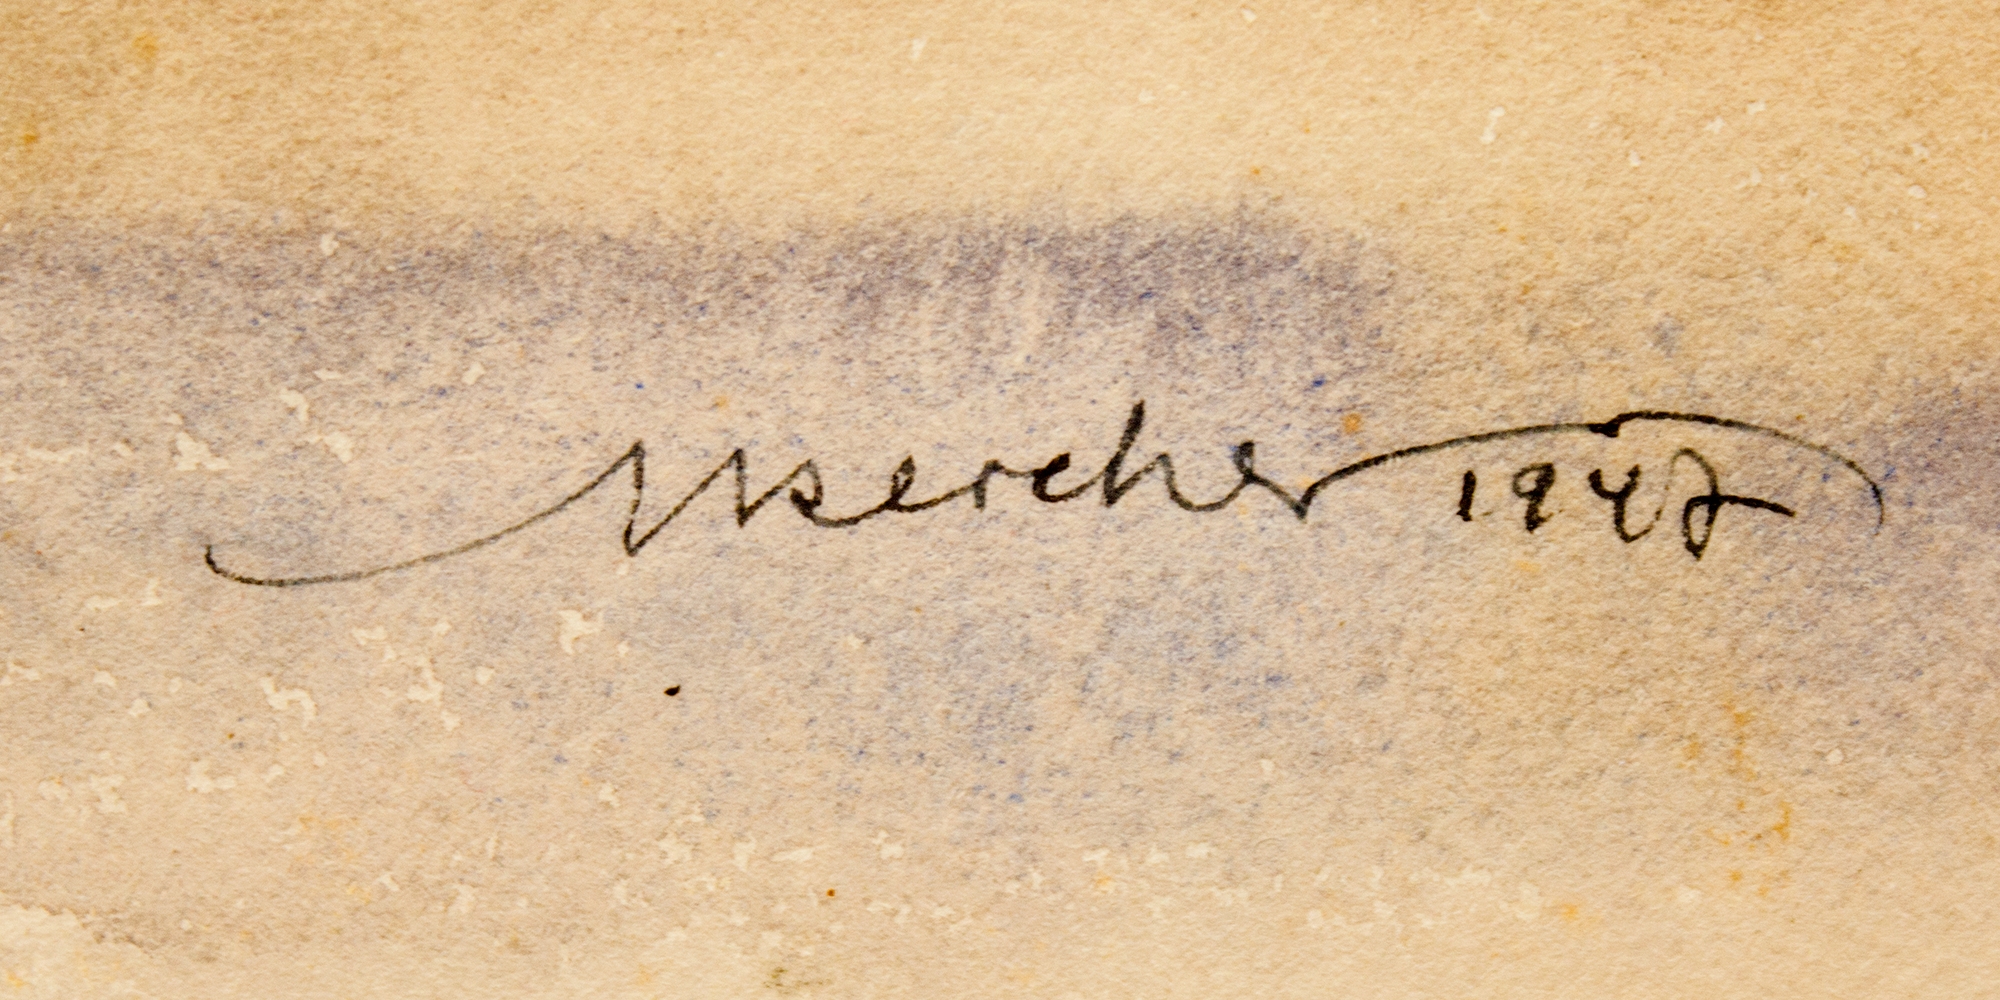 Mercher 1947